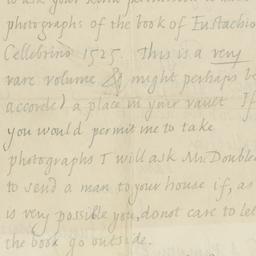 to ask your kind permission to take
photographs of the book of Eustachio
Cellebrino 1525 This is a very
rare volume & might perhaps be
accorded a place in your vault If
you would permit me to take
photographs I will ask Mr. Double
to send a man to your house if, as
is very possible you, do not care to let
the book go outside.